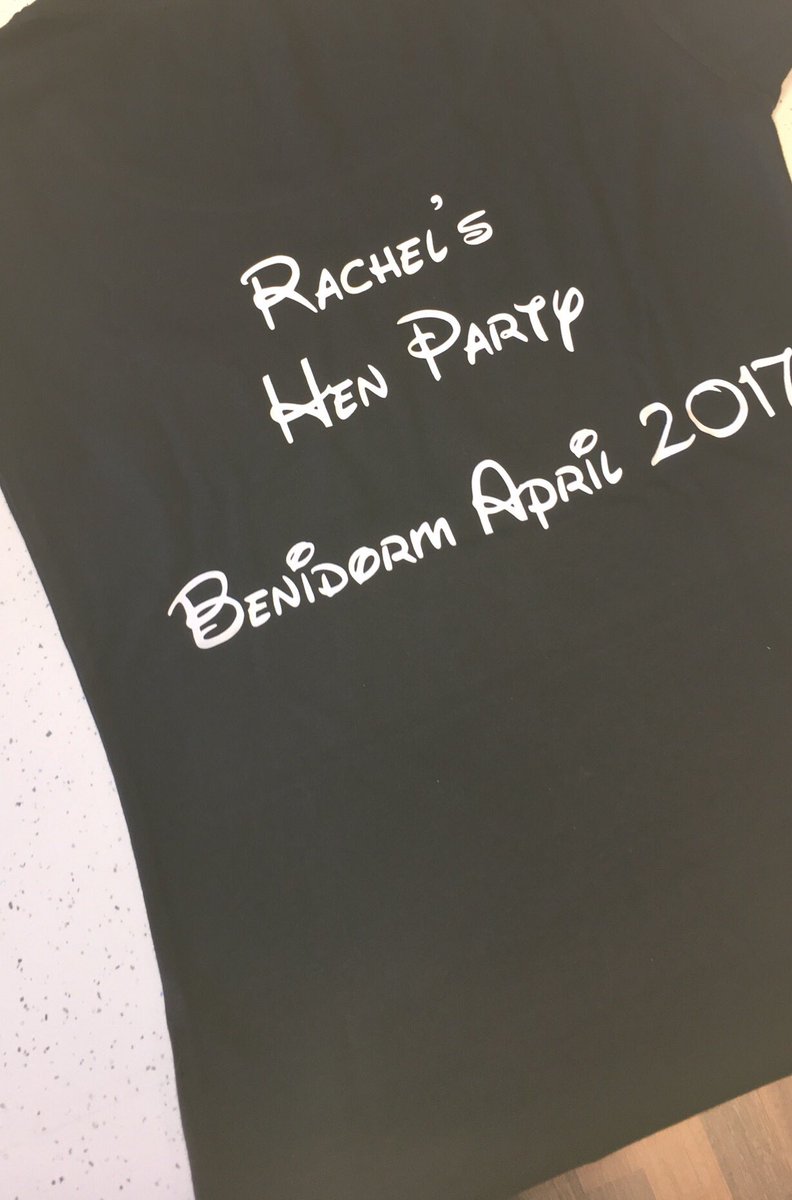 Rachel's
Hen Party
Benidorm April 2017